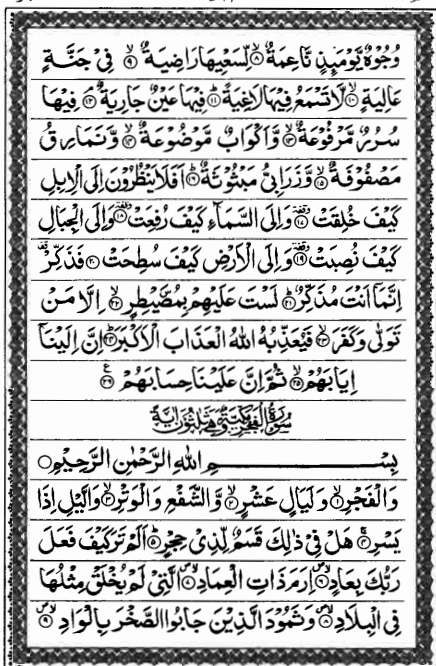 وُجُوْهٌ يَّوْمَىِٕذٍ نَّاعِمَةٌ ۙ‏﴿۸﴾ لِّسَعْيِهَا رَاضِيَةٌ ۙ‏﴿۹﴾ فِىْ جَنَّةٍ
عَالِيَةٍ ۙ‏﴿۱۰﴾ لَّا تَسْمَعُ فِيْهَا لَاغِيَةً ؕ‏﴿۱۱﴾ فِيْهَا عَيْنٌ جَارِيَةٌ ۘ‏﴿۱۲﴾ فِيْهَا
سُرُرٌ مَّرْفُوْعَةٌ ۙ‏﴿۱۳﴾ وَّاَكْوَابٌ مَّوْضُوْعَةٌ ۙ‏﴿۱۴﴾ وَّنَمَارِقُ
مَصْفُوْفَةٌ ۙ‏﴿۱۵﴾ وَّزَرَابِىُّ مَبْثُوْثَةٌ ؕ‏﴿۱۶﴾ اَفَلَا يَنْظُرُوْنَ اِلَى الْاِبِلِ
كَيْفَ خُلِقَتْ ‏﴿۱۷﴾ وَاِلَى السَّمَآءِ كَيْفَ رُفِعَتْ ‏﴿۱۸﴾ وَاِلَى الْجِبَالِ
كَيْفَ نُصِبَتْ ‏﴿۱۹﴾ وَاِلَى الْاَرْضِ كَيْفَ سُطِحَتْ ‏﴿۲۰﴾ فَذَكِّرْ
اِنَّمَاۤ اَنْتَ مُذَكِّرٌ ؕ‏﴿۲۱﴾ لَسْتَ عَلَيْهِمْ بِمُصَۜيْطِرٍ ۙ‏﴿۲۲﴾ اِلَّا مَنْ
تَوَلّٰى وَكَفَرَ ۙ‏﴿۲۳﴾ فَيُعَذِّبُهُ اللّٰهُ الْعَذَابَ الْاَكْبَرَ ؕ‏﴿۲۴﴾ اِنَّ اِلَيْنَاۤ
اِيَابَهُمْ ۙ‏﴿۲۵﴾ ثُمَّ اِنَّ عَلَيْنَا حِسَابَهُمْ ‏﴿۲۶﴾
سُوْرَةُ الْفَجْرِ مَكِّيَّةٌ وَّهِىَ ثَلٰثُوْنَ اٰيَةً
بِسْمِ اللّٰهِ الرَّحْمٰنِ الرَّحِيْمِ
وَالْفَجْرِ ۙ‏﴿۱﴾ وَلَيَالٍ عَشْرٍ ۙ‏﴿۲﴾ وَّالشَّفْعِ وَالْوَتْرِ ۙ‏﴿۳﴾ وَالَّيْلِ اِذَا
يَسْرِ ۚ‏﴿۴﴾ هَلْ فِىْ ذٰلِكَ قَسَمٌ لِّذِىْ حِجْرٍ ؕ‏﴿۵﴾ اَلَمْ تَرَ كَيْفَ فَعَلَ
رَبُّكَ بِعَادٍ ۙ‏﴿۶﴾ اِرَمَ ذَاتِ الْعِمَادِ ۙ‏﴿۷﴾ الَّتِىْ لَمْ يُخْلَقْ مِثْلُهَا
فِى الْبِلَادِ ۙ‏﴿۸﴾ وَثَمُوْدَ الَّذِيْنَ جَابُوا الصَّخْرَ بِالْوَادِ ۙ‏﴿۹﴾